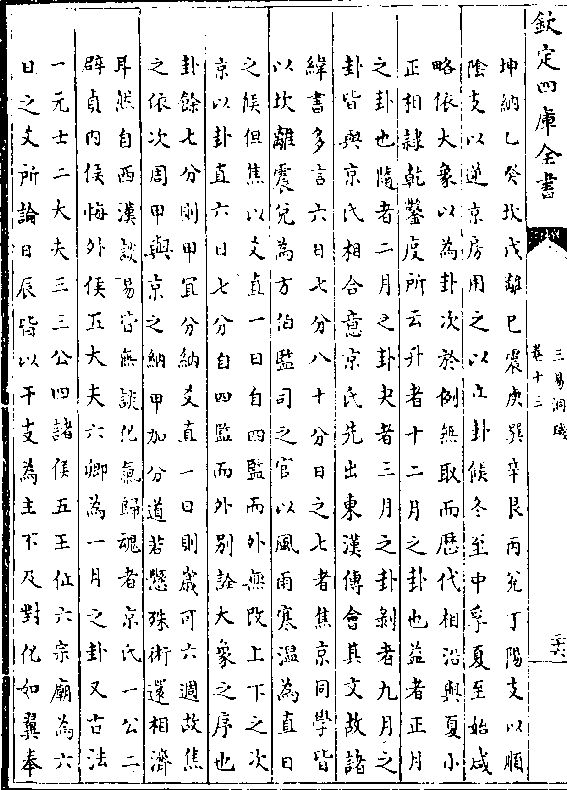 欽定四庫全書
三易洞璣
卷十三
三六
坤納乙癸坎戊離巳震庚巽辛艮丙兌丁陽支以順
陰支以逆京房用之以立卦候冬至中孚夏至始咸
略依大象以為卦次於例無取而歴代相沿與夏小
正相隷乾鑿度所云升者十二月之卦也益者正月
之卦也隨者二月之卦夬者三月之卦剝者九月之
卦皆與京氏相合意京氏先出東漢傅會其文故諸
緯書多言六日七分八十分日之七者焦京同學皆
以坎離震兌為方伯監司之官以風雨寒温為直日
之候但焦以爻直一日自四監而外無改上下之次
京以卦直六日七分自四監而外别詮大象之序也
卦餘七分則甲宜分納爻直一日則嵗可六週故焦
之依次周甲與京之納甲加分道若懸殊術還相濟
耳然自西漢談易皆無談化氣歸魂者京氏一公二
辟貞内侯悔外侯五大夫六卿為一月之卦又古法
一元士二大夫三三公四諸侯五王位六宗廟為六
日之爻所論日辰皆以干支為主不及對化如翼奉